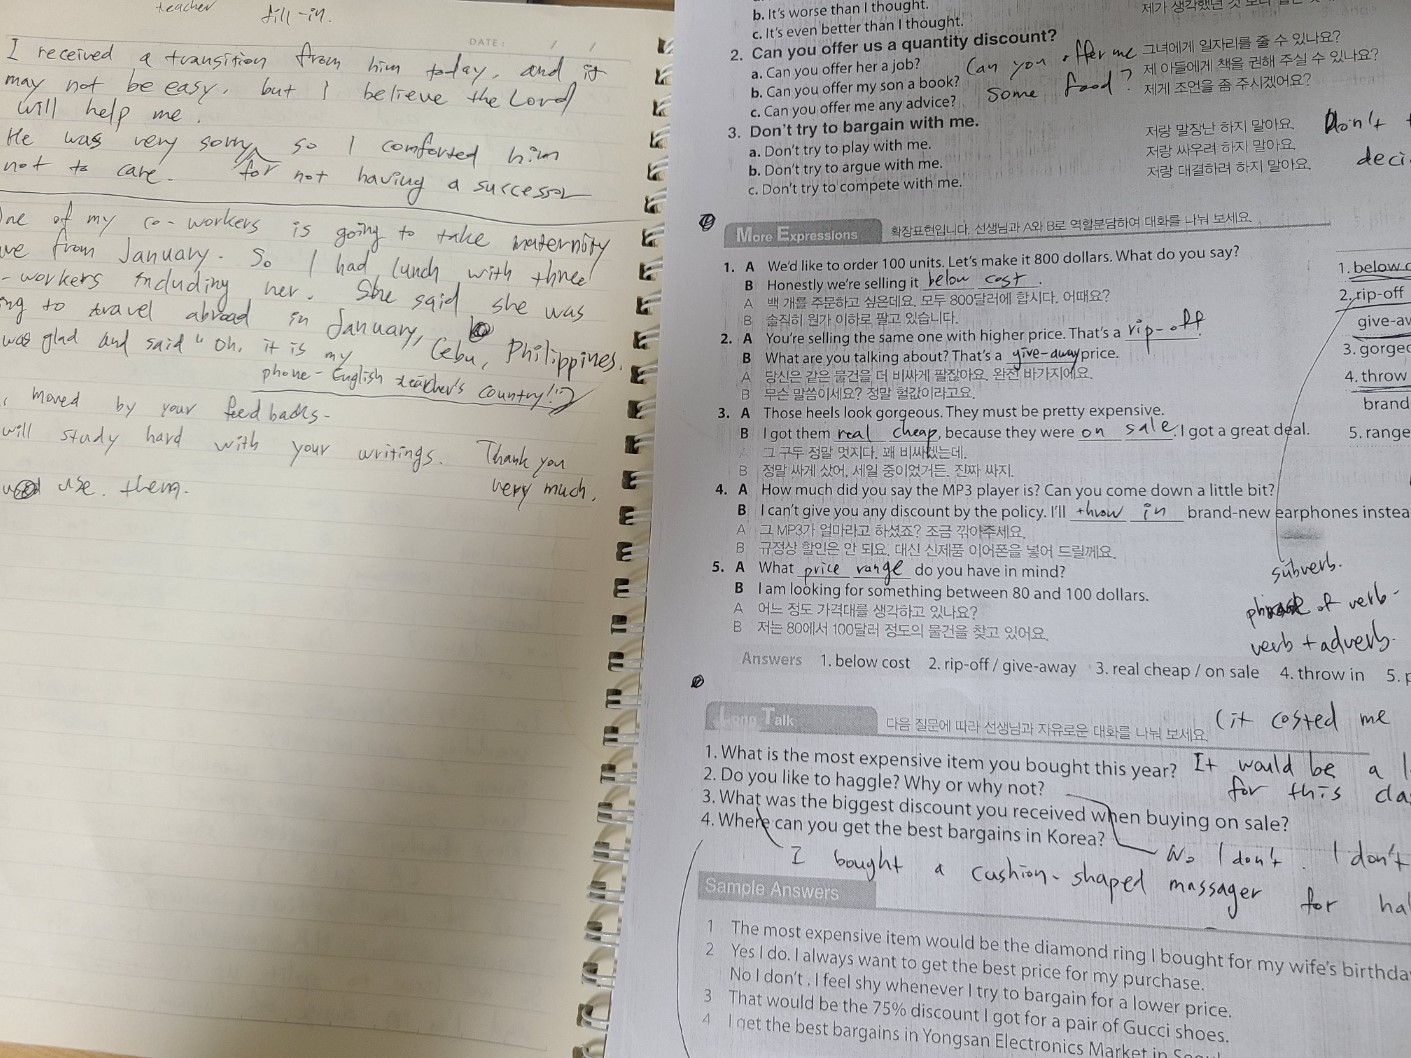 teacher fill-in.
DATE: / /
I received a transition from him today, and it
may not be easy, but I believe the Lord
will help me.
He was very sorry so I comforted him
not to care. for not having a successor
One of my co-workers is going to take maternity
from January. So I had lunch with three
-workers including her. She said she was
ing to travel abroad in January, Cebu, Philippines.
was glad and said "Oh, it is my
phone-English teacher's country!:)
moved by your feedbacks-
will study hard with your writings. Thank you
use them. very much.
b. It's worse than I thought.
c. It's even better than I thought.
2. Can you offer us a quantity discount?
a. Can you offer her a job? 그녀에게 일자리를 줄 수 있나요?
b. Can you offer my son a book? 제 아들에게 책을 권해 주실 수 있나요?
c. Can you offer me any advice? 제게 조언을 좀 주시겠어요?
Can you offer me
some food?
3. Don't try to bargain with me.
a. Don't try to play with me. 저랑 말장난 하지 말아요.
b. Don't try to argue with me. 저랑 싸우려 하지 말아요.
c. Don't try to compete with me. 저랑 대결하려 하지 말아요.
Don't
deci
More Expressions 확장표현입니다. 선생님과 A와 B로 역할분담하여 대화를 나눠 보세요.
1. A We'd like to order 100 units. Let's make it 800 dollars. What do you say?
B Honestly we're selling it below cost.
A 백 개를 주문하고 싶은데요. 모두 800달러에 합시다. 어때요?
B 솔직히 원가 이하로 팔고 있습니다.
2. A You're selling the same one with higher price. That's a rip-off.
B What are you talking about? That's a give-away price.
A 당신은 같은 물건을 더 비싸게 팔잖아요. 완전 바가지에요.
B 무슨 말씀이세요? 정말 헐값이라고요.
3. A Those heels look gorgeous. They must be pretty expensive.
B I got them real cheap, because they were on sale. I got a great deal.
A 그 구두 정말 멋지다. 꽤 비싸겠는데.
B 정말 싸게 샀어. 세일 중이었거든. 진짜 싸지.
4. A How much did you say the MP3 player is? Can you come down a little bit?
B I can't give you any discount by the policy. I'll throw in brand-new earphones instea
A 그 MP3가 얼마라고 하셨죠? 조금 깎아주세요.
B 규정상 할인은 안 되요. 대신 신제품 이어폰을 넣어 드릴께요.
5. A What price range do you have in mind?
B I am looking for something between 80 and 100 dollars.
A 어느 정도 가격대를 생각하고 있나요?
B 저는 80에서 100달러 정도의 물건을 찾고 있어요.
1. below c
2. rip-off
give-aw
3. gorgeo
4. throw
brand
5. range
subverb.
phrase of verb-
verb + adverb.
Answers 1. below cost 2. rip-off / give-away 3. real cheap / on sale 4. throw in 5. p
Long Talk 다음 질문에 따라 선생님과 자유로운 대화를 나눠 보세요.
(it costed me
1. What is the most expensive item you bought this year? It would be a
for this
2. Do you like to haggle? Why or why not?
3. What was the biggest discount you received when buying on sale?
4. Where can you get the best bargains in Korea?
No I don't. I don't
I bought a cushion-shaped massager for
Sample Answers
1 The most expensive item would be the diamond ring I bought for my wife's birthda
2 Yes I do. I always want to get the best price for my purchase.
No I don't. I feel shy whenever I try to bargain for a lower price.
3 That would be the 75% discount I got for a pair of Gucci shoes.
4 I get the best bargains in Yongsan Electronics Market in